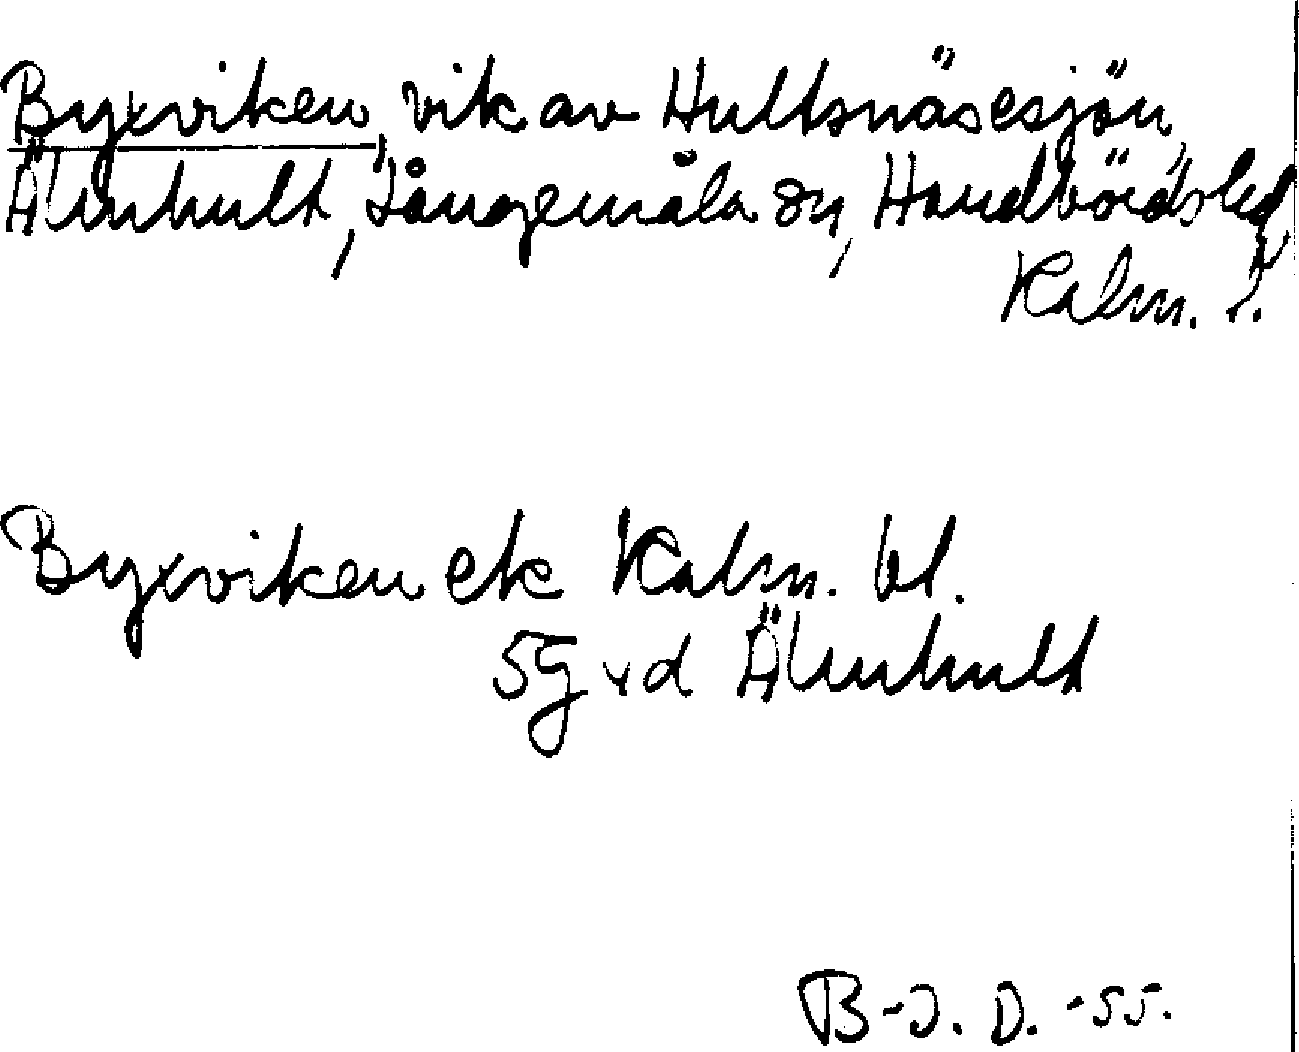 Byxviken, vik av Hultsnäsesjön,
Älmhult, Långemåla sn, Handbörds hd,
Kalm. l.
Byxviken ek Kalm. bl.
5g vd Älmhult
B-J. D. -55.